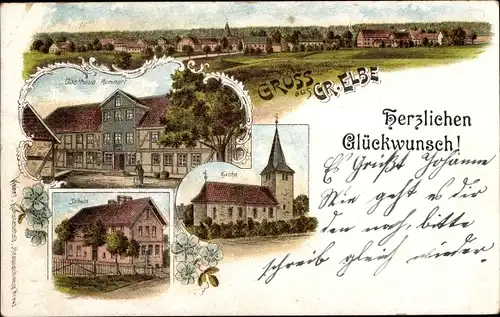 GRUSS aus GR. ELBE
Gasthaus
Herzlichen
Glückwunsch!
Kirche
Schule
Es Grüßt Johanne
Wie geht es dir
denn noch, bitte
schreib gleich wieder